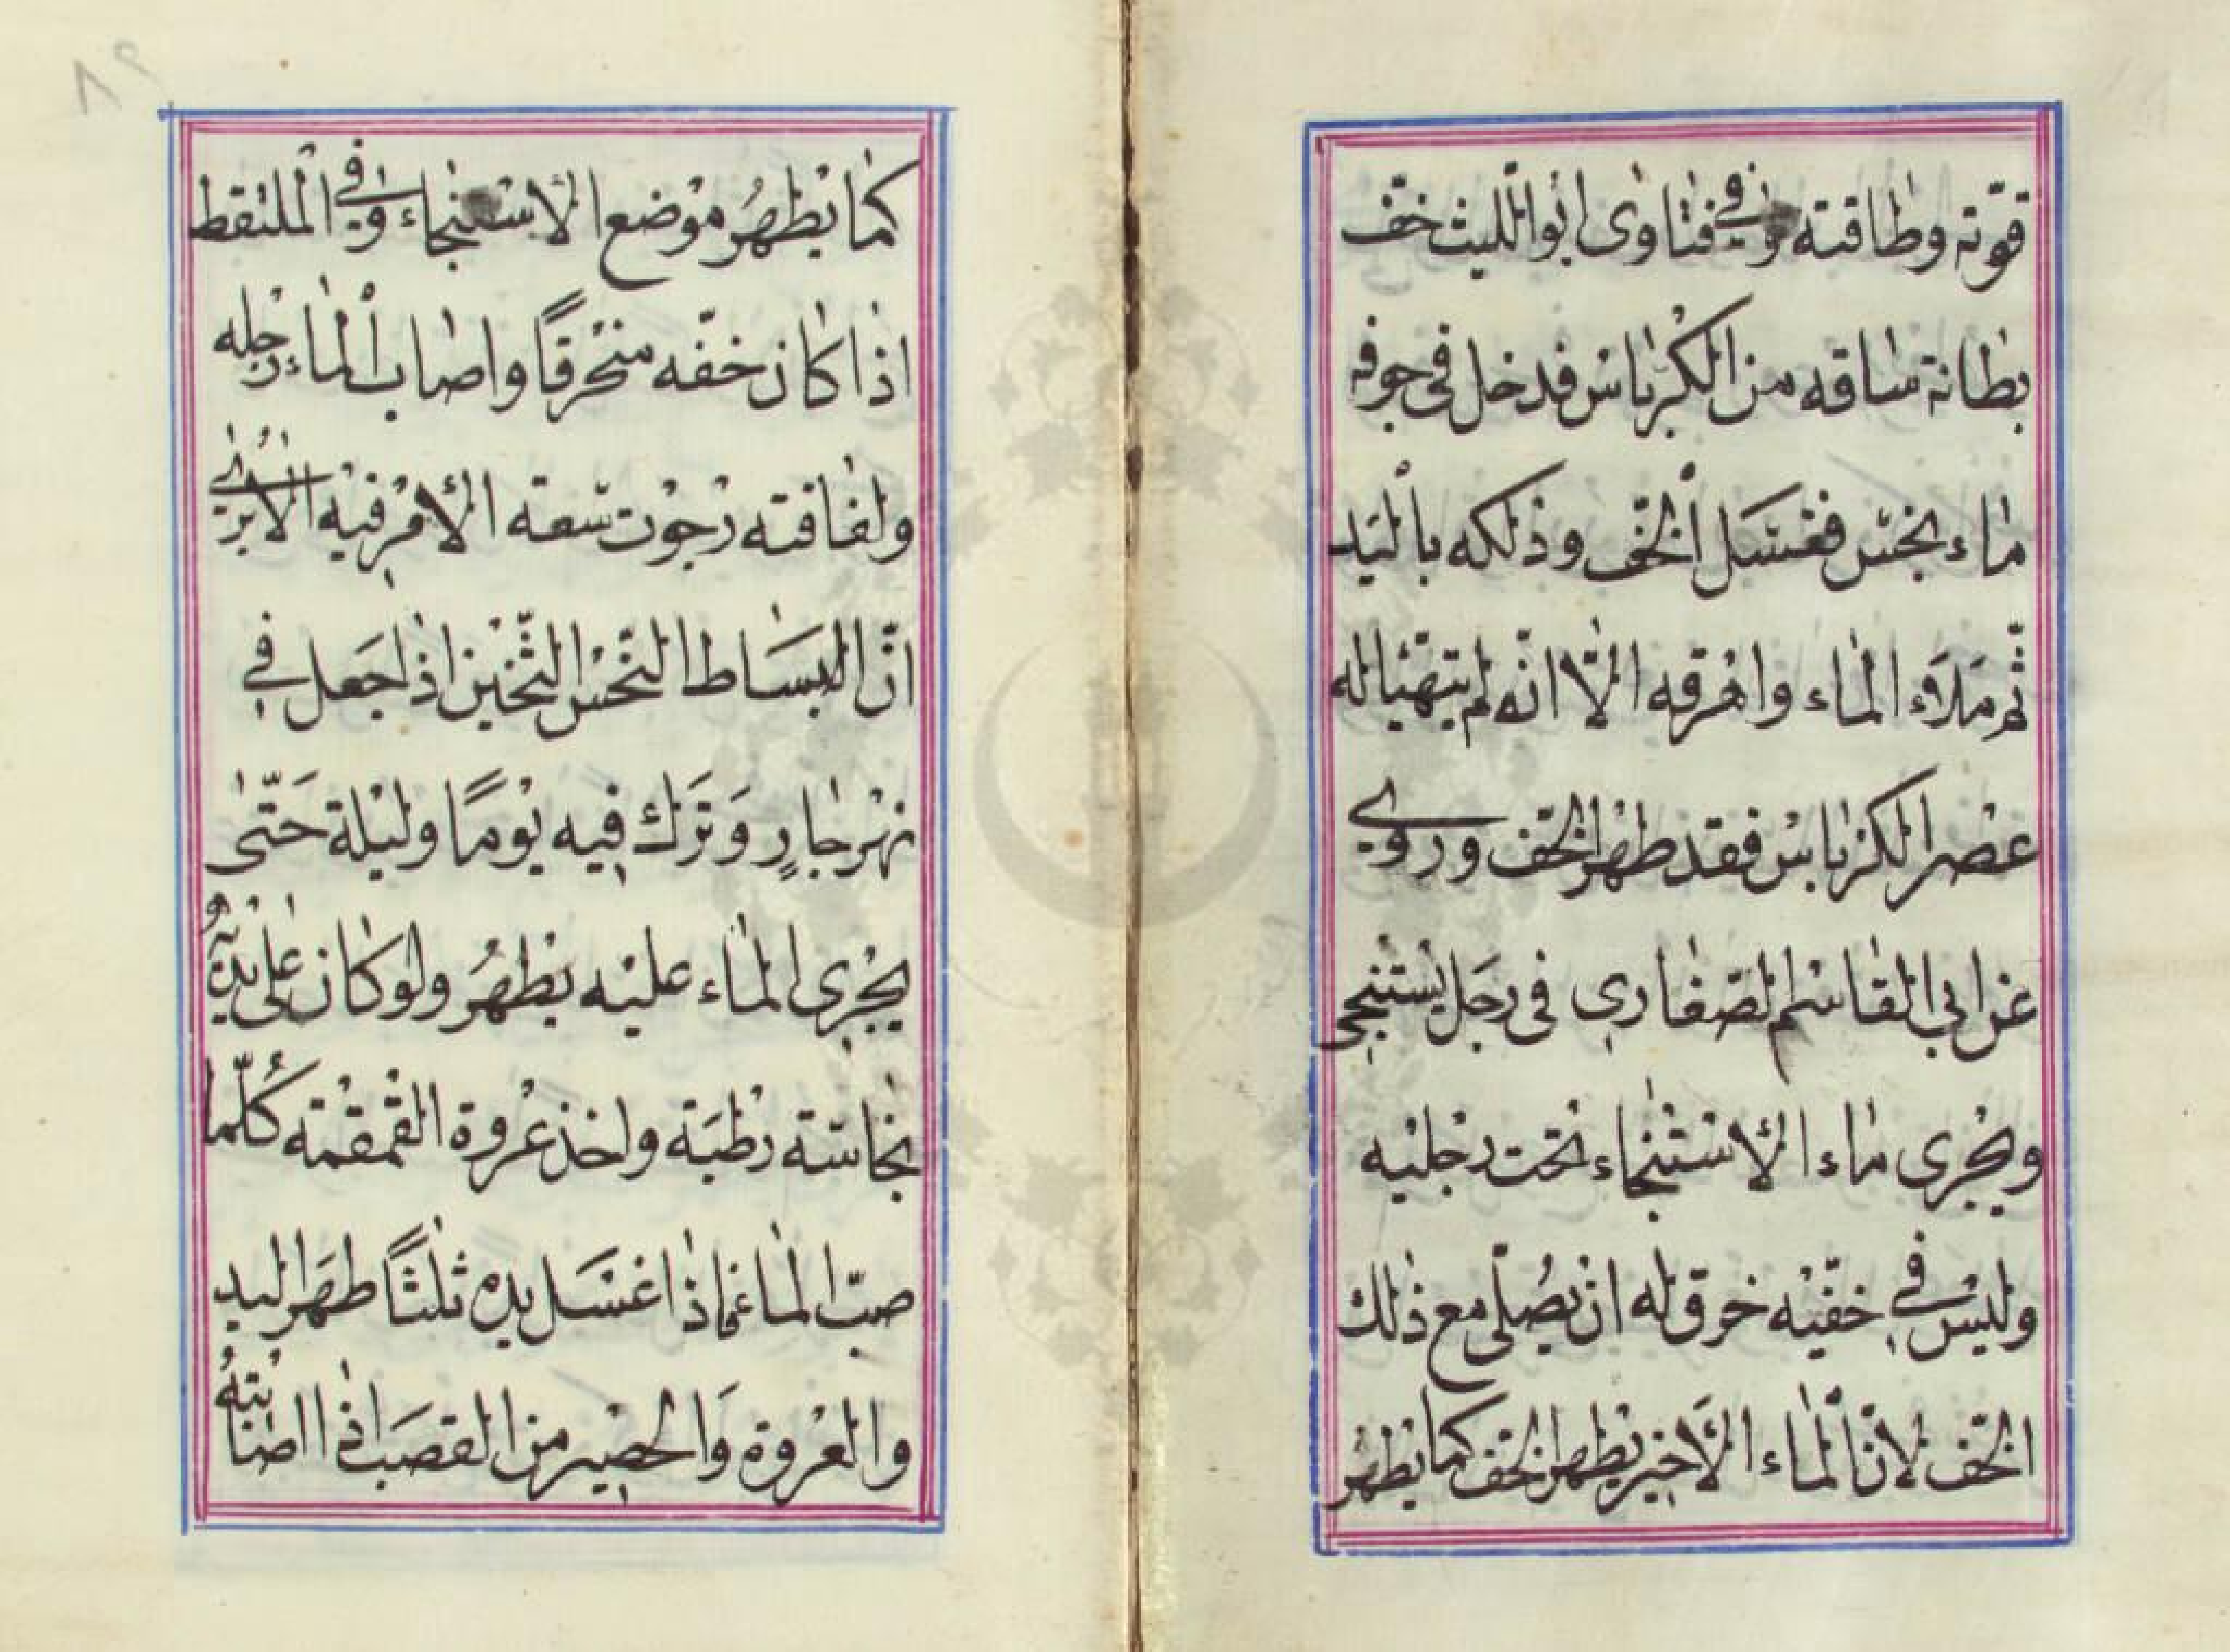 قوّته وطاقته وفي فتاوى ابو اللّيث خفّ
بطانة ساقه من الكرباس فدخل في جوفه
ماء نجس فغسل الخفّ وذلكه باليد
ثمّ ملاء الماء واهرقه الّا انّه لم يتهيّا له
عصر الكرباس فقد طهر الخفّ وروي
عن ابي القاسم الصّفاري في رجل يستنجي
ويجري ماء الأستنجاء تحت رجليه
وليس في خفّيه خرق له ان يصلّي مع ذلك
الخفّ لانّ الماء الأخير يطهر الخفّ كما يطهر
كما يطهر موضع الأستنجاء وفي الملتقط
اذا كان خفّه منخرقًا واصاب الماء رجله
ولفافته رجوت سعة الأمر فيه
انّ البساط النّجس الثّخين اذا جعل في
نهر جارٍ وترك فيه يومًا وليلة حتّى
يجري الماء عليه يطهر ولو كان على يده
نجاسة رطبة واخذ عروة القمقمة كلّما
صبّ الماء فاذا غسل يده ثلثًا طهر اليد
والعروة والحصير من القصب اذا اصابته
٨٩